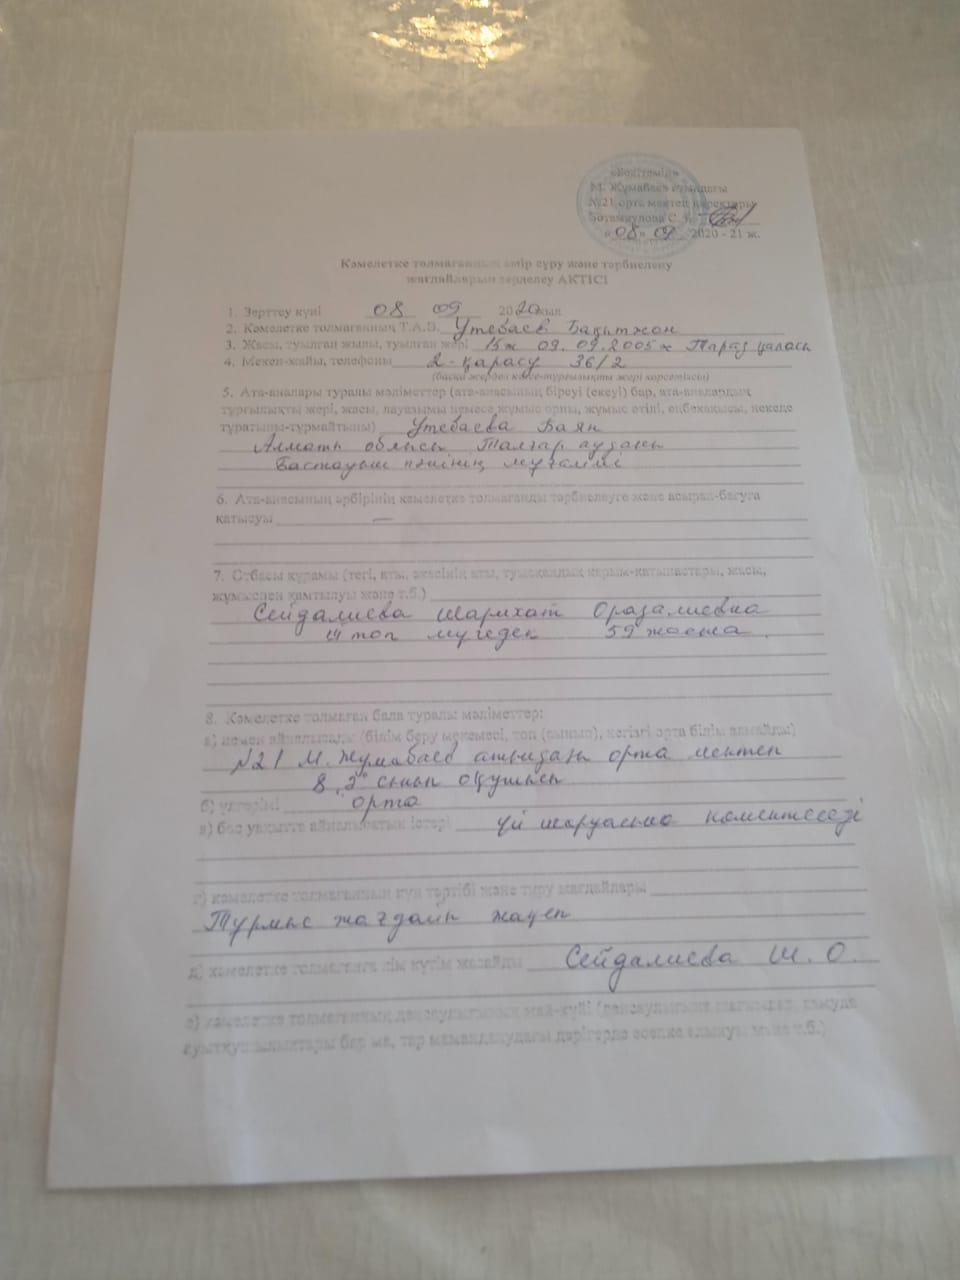 «Бекітемін»
М. Жұмабаев атындағы
№21 орта мектеп директоры
Ботамкулова С.
«08» 09 2020 - 21 ж.
Кәмелетке толмағанның өмір сүру және тәрбиелену
жағдайларын зерделеу АКТІСІ
1. Зерттеу күні 08 09 2020 жыл
2. Кәмелетке толмағанның Т.А.Ә. Утебаев Бақытжон
3. Жасы, туылған жылы, туылған жері 15ж 09.09.2005ж Тараз қаласы
4. Мекен-жайы, телефоны 2-қарасу 36/2
(басқа жерден көшсе-тұрғылықты жері көрсетілсін)
5. Ата-аналары туралы мәліметтер (ата-анасының біреуі (екеуі) бар, ата-аналардың
тұрғылықты жері, жасы, лауазымы немесе жұмыс орны, жұмыс өтілі, еңбекақысы, некеде
тұратыны-тұрмайтыны) Утебаева Баян
Алматы облысы Талғар ауданы
Бастауыш пәнінің мұғалімі
6. Ата-анасының әрбірінің кәмелетке толмағанды тәрбиелеуге және асырап-бағуға
қатысуы —
7. Отбасы құрамы (тегі, аты, әкесінің аты, туысқандық қарым-қатынастары, жасы,
жұмыспен қамтылуы және т.б.)
Сейдалиева Шарихат Оразалиевна
топ мүгедек 59 жаста.
8. Кәмелетке толмаған бала туралы мәліметтер:
а) немен айналысады (білім беру мекемесі, топ (сынып), негізгі орта білім алмайды)
№21 М.Жумабаев атындағы орта мектеп
8 "Г" сынып оқушысы
б) үлгерімі орта
в) бос уақытта айналысатын істері үй шаруасына көмектеседі
г) кәмелетке толмағанның күн тәртібі және тұру жағдайлары
Тұрмыс жағдайы жақсы
д) кәмелетке толмағанға кім күтім жасайды Сейдалиева Ш. О.
е) кәмелетке толмағанның денсаулығының жай-күйі (денсаулығына шағымдар, дамуда
ауытқушылықтары бар ма, тар мамандандағы дәрігерде есепке алынуы және т.б.)